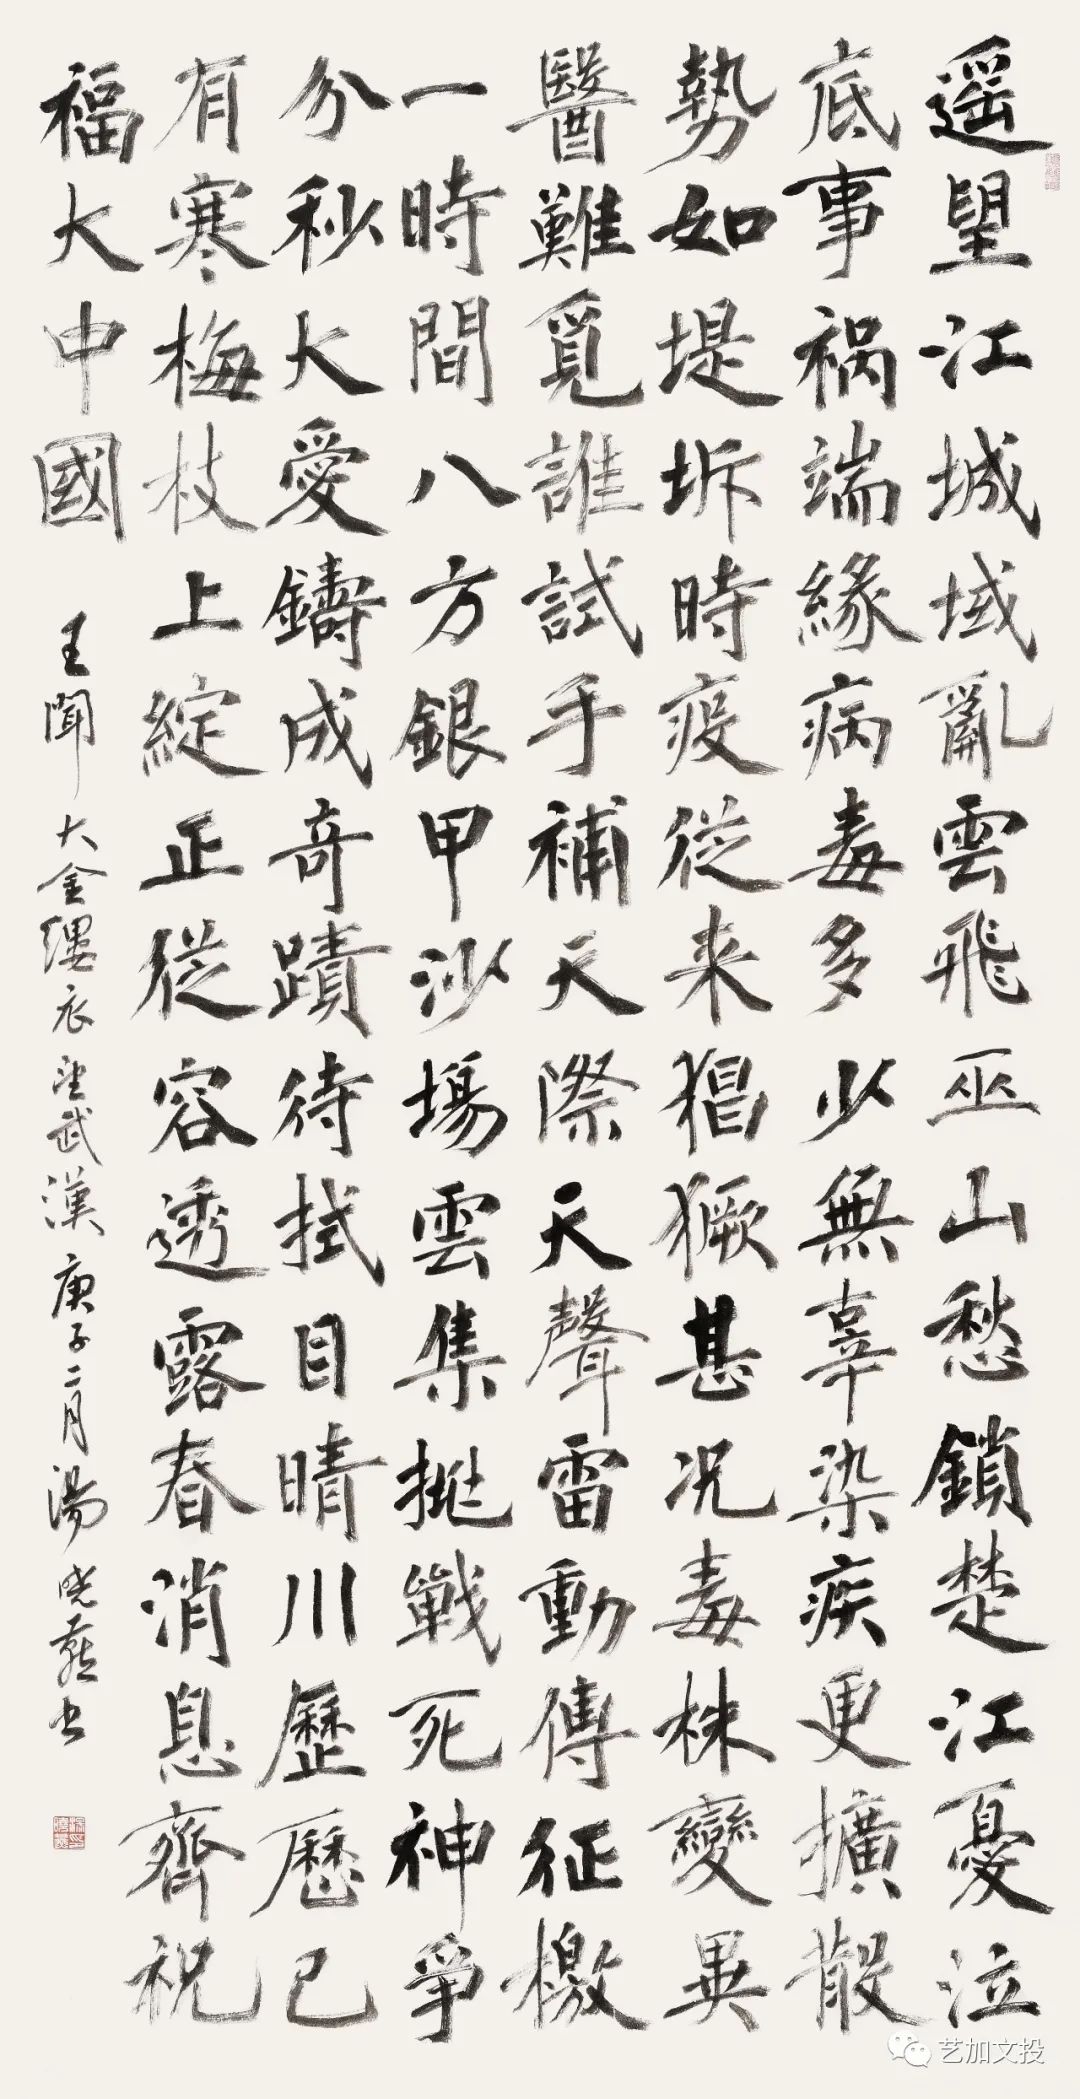 遥望江城域亂雲飛巫山愁鎖楚江憂泣
底事禍端緣病毒多少無辜染疾更擴散
勢如堤坼時疫從来猖獗甚况毒株變異
醫難覓誰試手補天際天聲雷動傳征檄
一時間八方銀甲沙場雲集挑戰死神爭
分秒大愛鑄成奇蹟待拭目晴川歷歷已
有寒梅枝上綻正從容透露春消息齊祝
福大中國
王聞大金縷衣望武漢庚子二月湯曉燕书
艺加文投